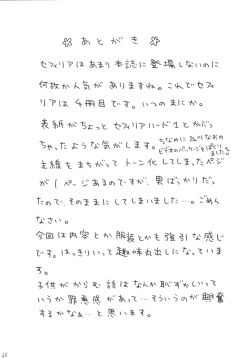 ☆ あとがき ☆
セフィリアはあまり本誌に登場しないのに
何故か人気がありますね。これでセフィ
リアは4冊目です。いつのまにか。
表紙がちょっとセフィリアハード1とかぶっ
ちゃったような気がします。
主線をまちがってトーン化してしまったページ
が1ページあるのですが、男ばっかりだっ
たので、そのままにしてしまいました…。ごめん
なさい。
今回は内容とか服装とかも強引な感じ
です。はっきりいって趣味丸出しになってい
ます。
子供がからむ話はなんか恥ずかしいって
いうか罪悪感があって…そういうのが興奮
するかなぁ…と思います。